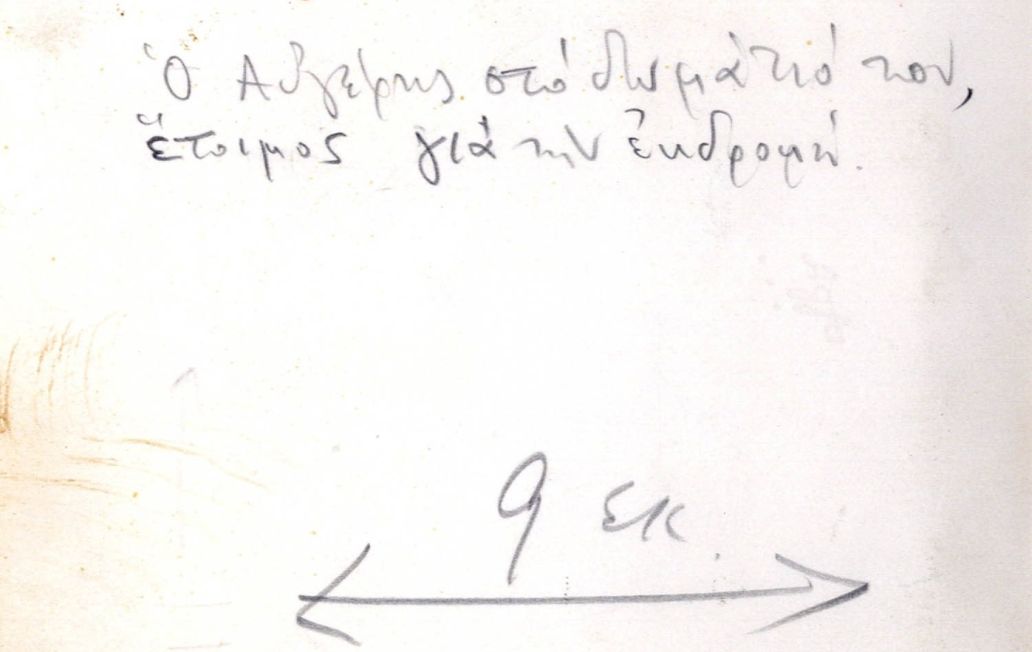 Ὁ Αὐγέρης στό δωμάτιό του,
ἕτοιμος γιά τήν ἐκδρομή.
9 εκ.